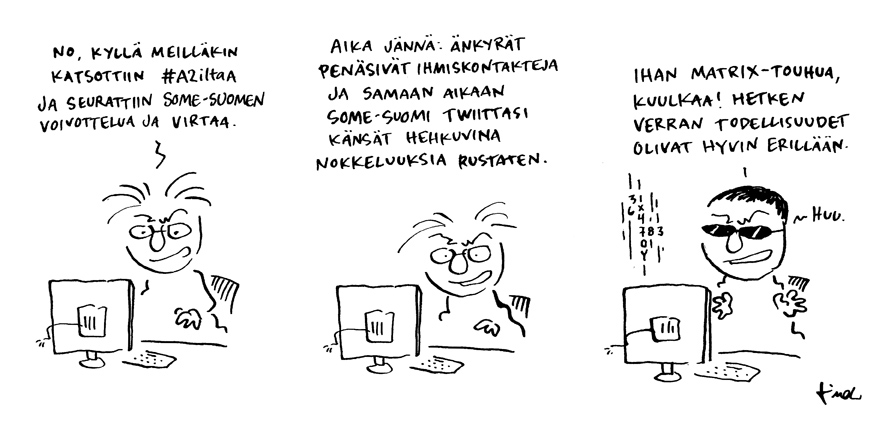 NO, KYLLÄ MEILLÄKIN
KATSOTTIIN #A2iltaA
JA SEURATTIIN SOME-SUOMEN
VOIVOTTELUA JA VIRTAA.
AIKA JÄNNÄ: ÄNKYRÄT
PENÄSIVÄT IHMISKONTAKTEJA
JA SAMAAN AIKAAN
SOME-SUOMI TWIITTASI
KÄNSÄT HEHKUVINA
NOKKELUUKSIA RUSTATEN.
IHAN MATRIX-TOUHUA,
KUULKAA! HETKEN
VERRAN TODELLISUUDET
OLIVAT HYVIN ERILLÄÄN.
~ HUU.